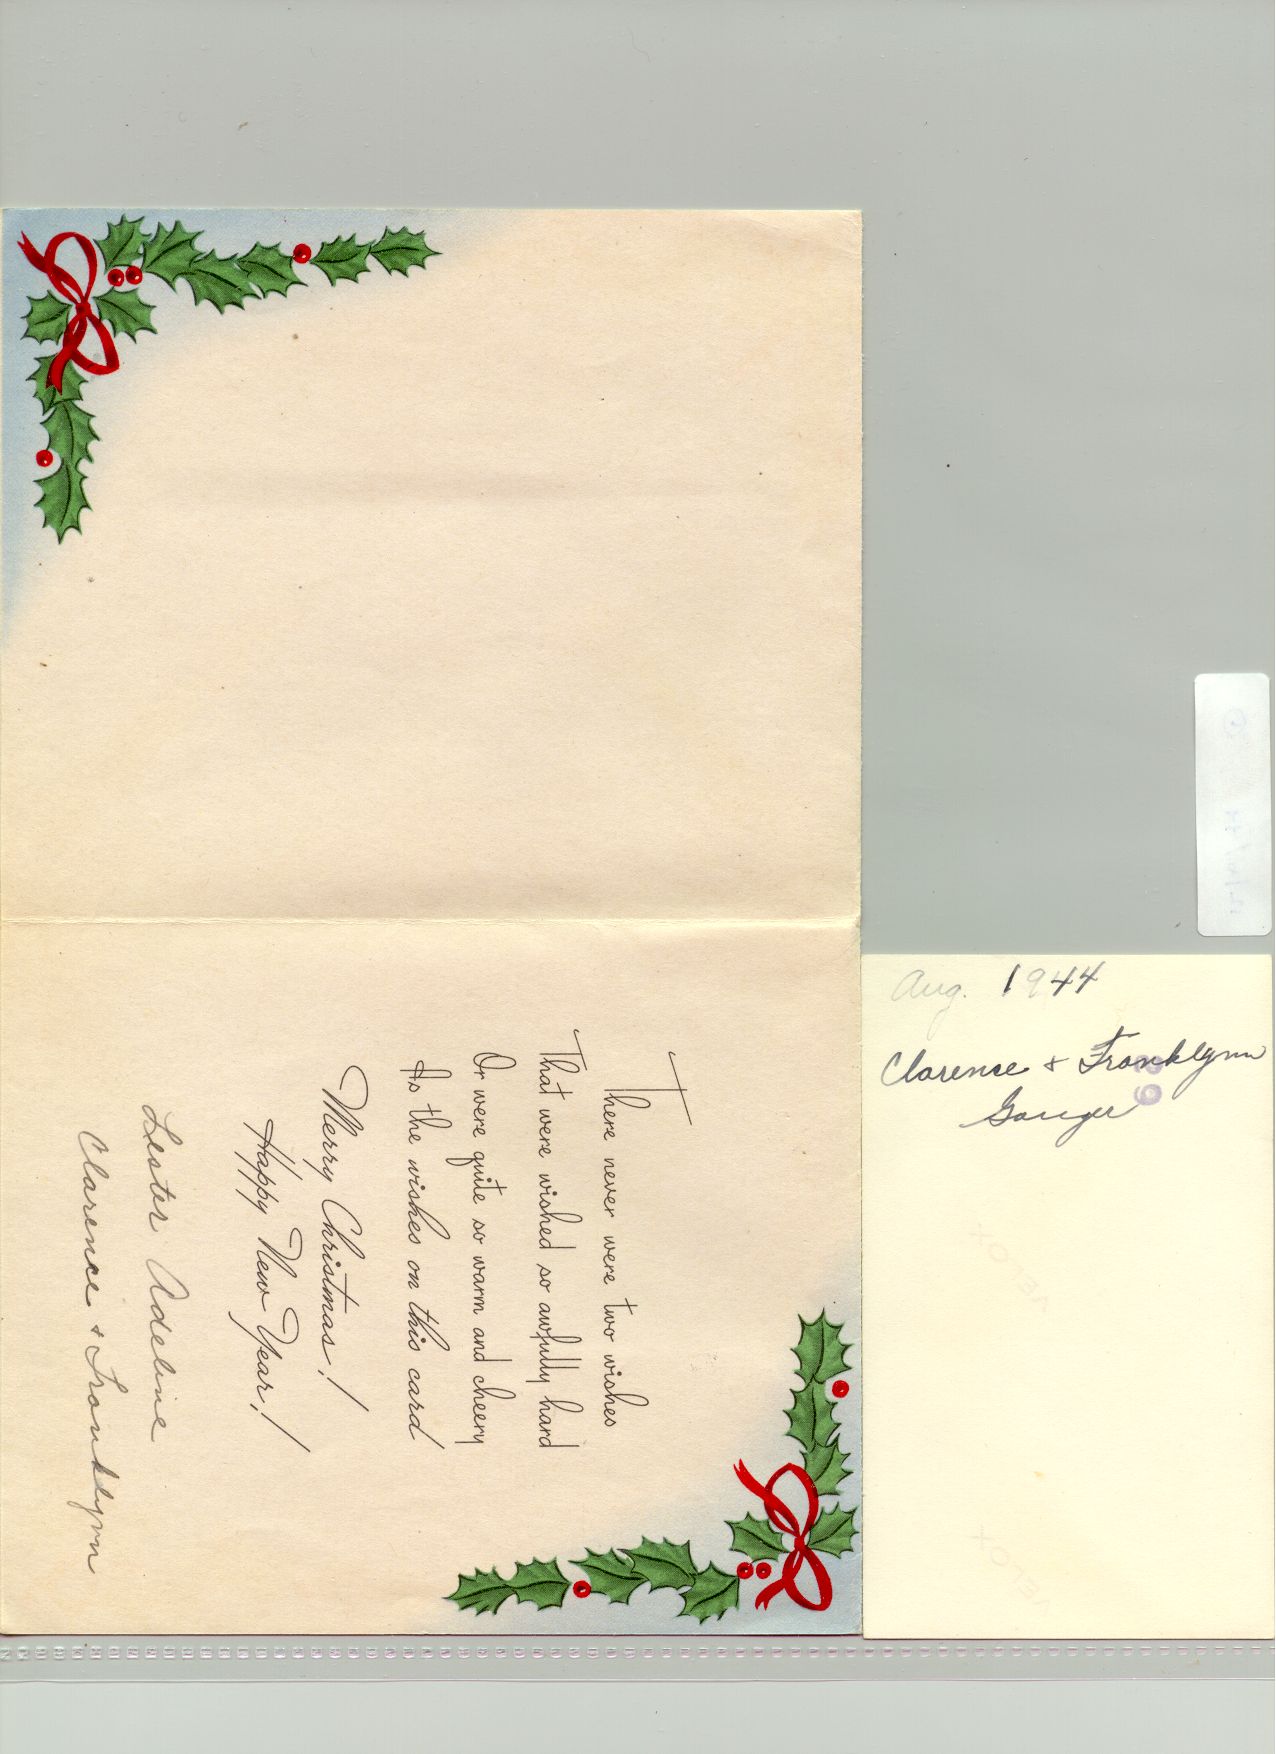 There never were two wishes
That were wished so awfully hard
Or were quite so warm and cheery
As the wishes on this card
Merry Christmas!
Happy New Year!
Lester Adeline
Clarence + Franklynn
Aug. 1944
Clarence + Franklynn
Ganger
62
VELOX
VELOX